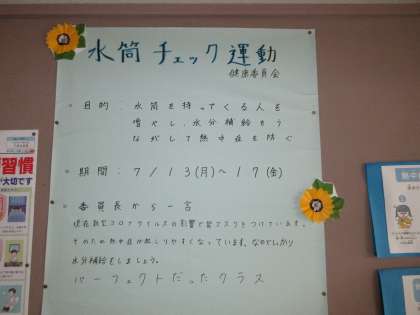 水筒チェック運動
健康委員会
・目的：水筒を持ってくる人を
増やし、水分補給をう
ながして熱中症を防ぐ
・期間：7/13(月)～17(金)
・委員長から一言
現在新型コロナウイルスの影響で皆マスクをつけています。
そのため熱中症が起こりやすくなっています。なのでしっかり
水分補給をしましょう。
パーフェクトだったクラス
習慣
が大切です
熱中